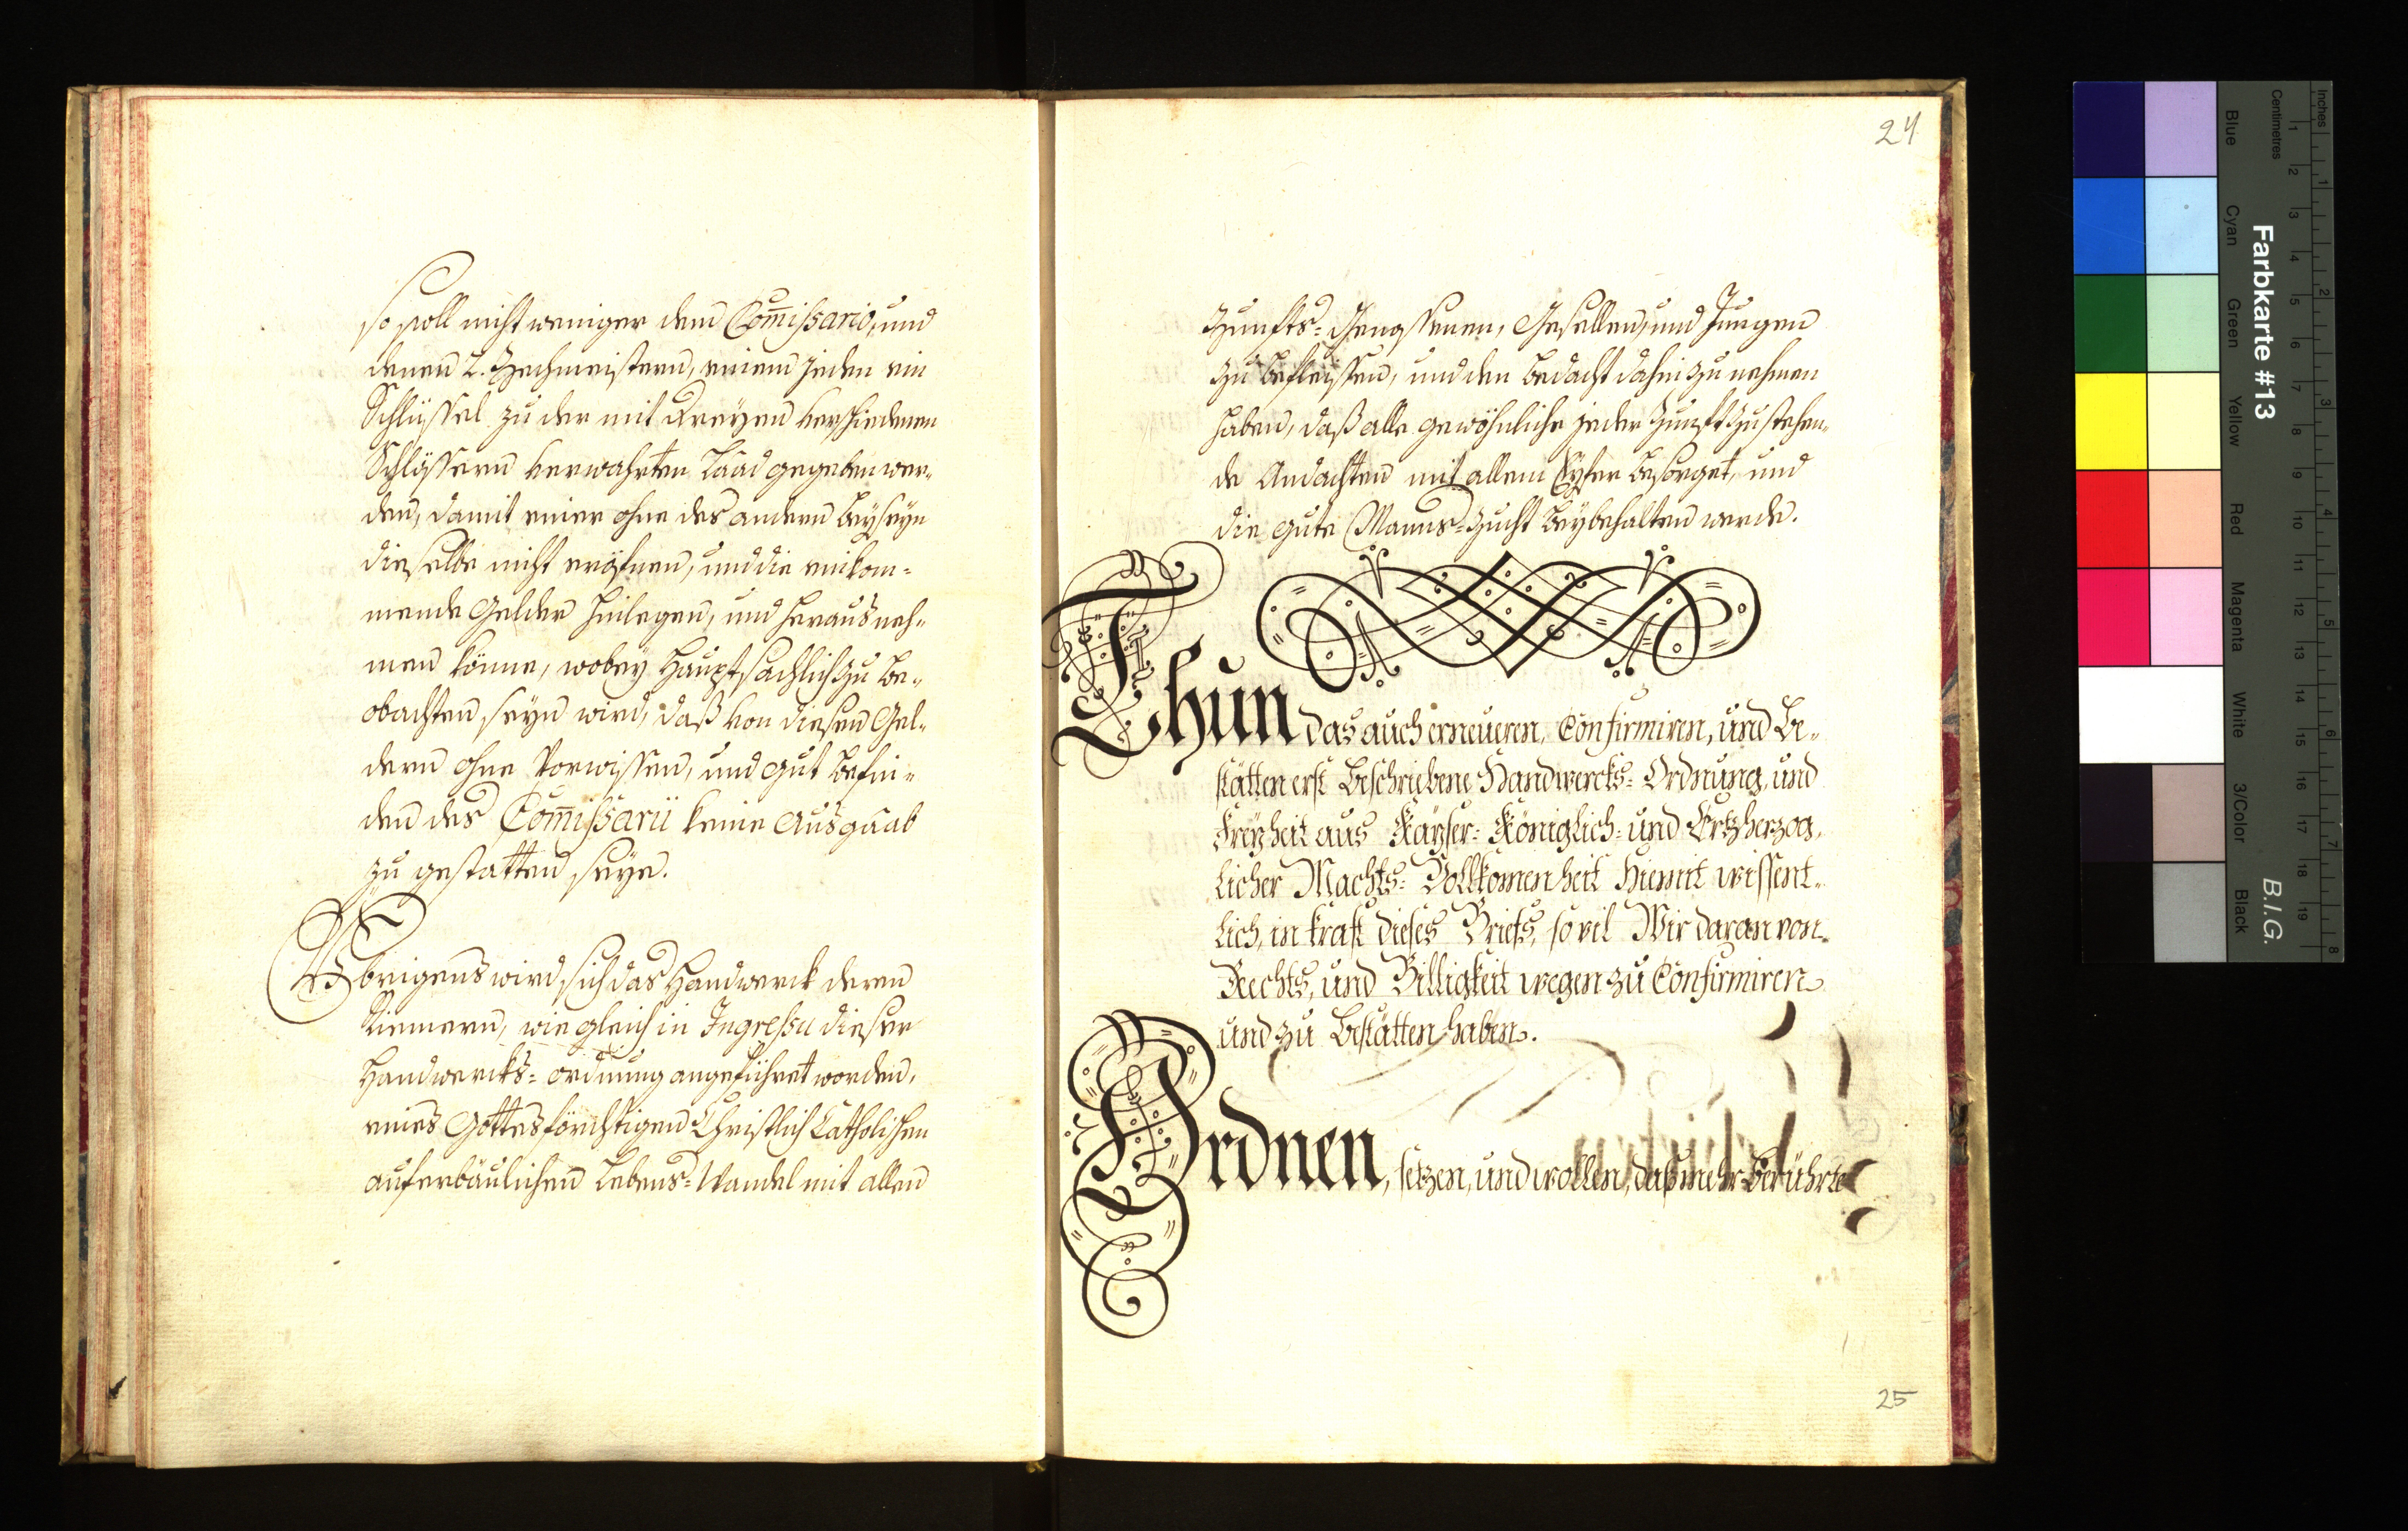 so soll nicht weniger dem Com̅issario, und
denen 2. Zechmeistern, einem jeden ein
Schlüssel zu der mit dreyen verschiedenen
Schlössern verwahrten Laad gegeben wer-
den, damit einer ohne des andern beyseyn
dieselbe nicht eröfnen, und die einkom-
mende Gelder hinlegen, und heraus neh-
men könne, wobey hauptsächlich zu be-
obachten seyn wird, daß von diesen Gel-
dern ohne Vorwissen, und gut befin-
den des Com̅issarii keine Ausgaab
zu gestatten seye.
Übrigens wird sich das Handwerck deren
Riemern, wie gleich in Ingressu dieser
Handwercks= ordnung angeführet worden,
eines Gottesförchtigen Christlich Catholischen
auferbäulichen Lebens=Wandel mit allen
24
Zunfts=Genossenen, Gesellen, und Jungen
zu befleissen, und den bedacht dahin zu nehmen
haben, daß alle gewöhnliche jeder Zunft zustehen-
de Andachten mit allem Eyfer besorget, und
die gute Manns=Zucht beybehalten werde.
Thun das auch erneueren, Confirmiren, und Be-
stätten erst Beschriebene Handwercks= Ordnung, und
Freyheit aus Kayser= Königlich= und Ertzherzog-
licher Machts= Vollkomenheit Hiemit wissent-
lich, in kraft dieses Briefs, so vil Wir daran von
Rechts, und Billigkeit wegen zu Confirmiren
und zu Bestätten haben.
Ordnen, setzen, und wollen, daß mehr Berührte
25
Inches
Centimetres
Farbkarte #13
B.I.G.
Blue
Cyan
Green
Yellow
Red
Magenta
White
3/Color
Black
1 2 3 4 5 6 7 8 9 10 11 12 13 14 15 16 17 18 19
1 2 3 4 5 6 7 8